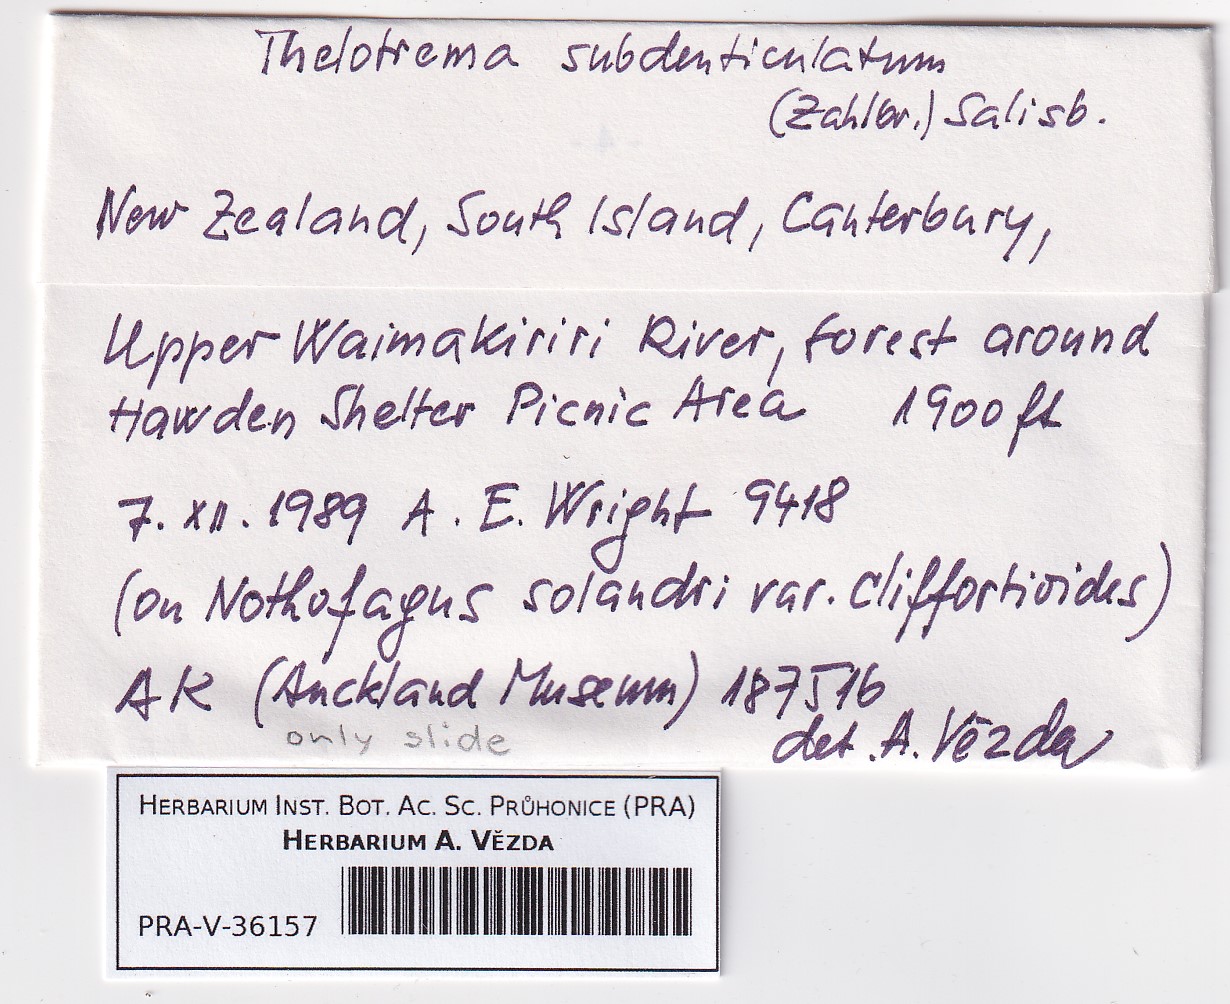 Thelotrema subdenticulatum
(Zahlbr.) Salisb.
New Zealand, South Island, Canterbury,
Upper Waimakiriri River, forest around
Hawden Shelter Picnic Area 1900 ft
7. XII. 1989 A. E. Wright 9418
(on Nothofagus solandri var. cliffortioides)
AK (Auckland Museum) 187516
only slide
det. A. Vězda
HERBARIUM INST. BOT. AC. SC. PRŮHONICE (PRA)
HERBARIUM A. VĚZDA
PRA-V-36157